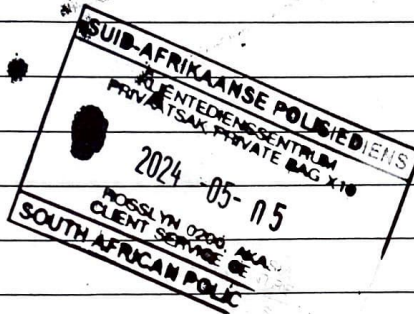 SUID-AFRIKAANSE POLISIEDIENS
KLIENTEDIENSSENTRUM
PRIVAATSAK PRIVATE BAG X10
2024 -05- 05
ROSSLYN 0200, AKA
CLIENT SERVICE CE
SOUTH AFRICAN POLIC